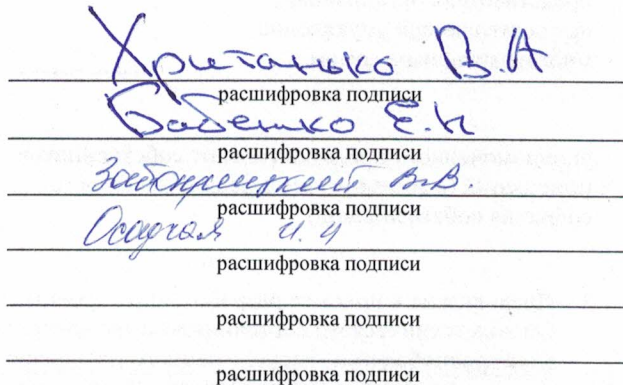 Хритонько В.А
расшифровка подписи
Бабенко Е.Н
расшифровка подписи
В.В.
расшифровка подписи
Осадчая И.И
расшифровка подписи
расшифровка подписи
расшифровка подписи